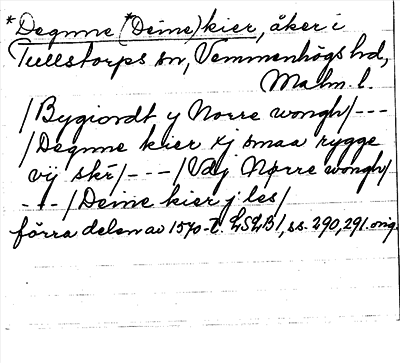 *Degnne (*Deine) kier, åker i
Tullstorps sn, Vemmenhögs hd,
Malm. l.
/Bygiordt y Norre wongh/---
/Degnne kier xj smaa rygge
vij skr/---/Vdj Nørre wongh/
---/Deine kier j les/
förra delen av 1570-t. LSLB 1, ss. 290, 291. orig.